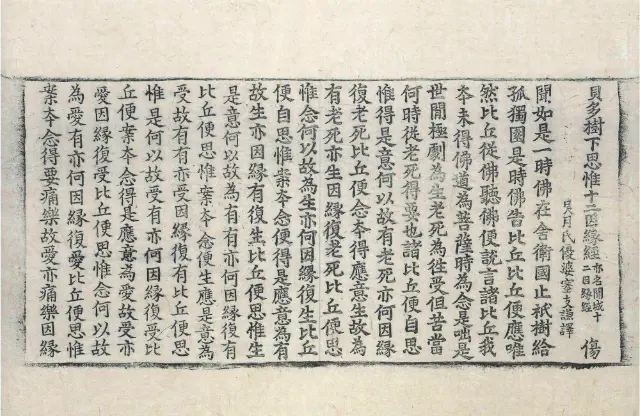 貝多樹下思惟十二因緣經 亦名聞城十二因緣經 傷
吳月氏優婆塞支謙譯
聞如是一時佛在舍衛國止祇樹給
孤獨園是時佛告比丘比丘便應唯
然比丘從佛聽佛便說言諸比丘我
夲未得佛道為菩薩時為念是咄是
世間極劇為生老死為從受但苦當
何時從老死得要也諸比丘便自思
惟得是意何以故有老死亦何因緣
復老死比丘便念夲得應意生故為
有老死亦生因緣復老死比丘便思
惟念何以故為生亦何因緣復生比丘
便自思惟案夲念便得是應意為有
故生亦因緣有復生比丘便思惟生
是意何以故為有有亦何因緣復有
比丘便思惟案夲念便生應是意為
受故有有亦受因緣復有比丘便思
惟是何以故受有亦何因緣復受比
丘便案夲念得是應意為愛故受亦
愛因緣復受比丘便思惟念何以故
為愛有亦何因緣復愛比丘便思惟
案夲念得要痛樂故愛亦痛樂因緣